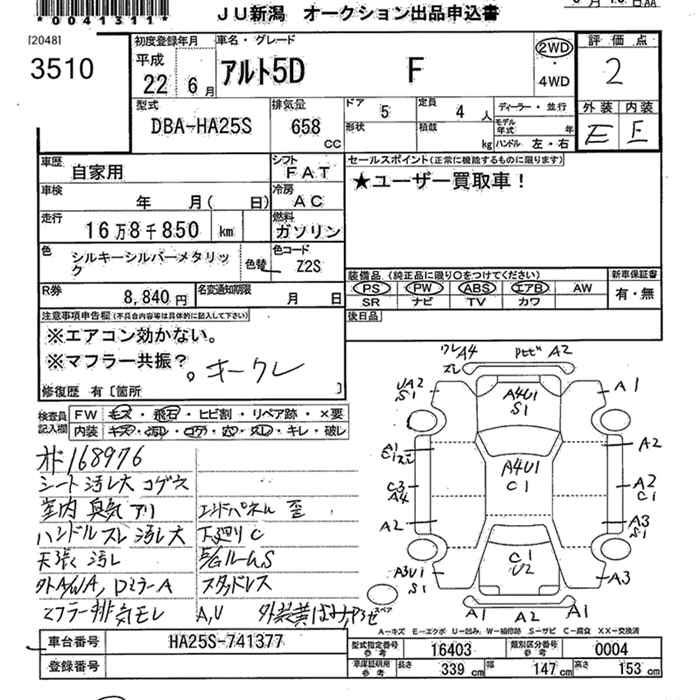 *0041311*
JU新潟 オークション出品申込書
[2048]
3510
初度登録年月
平成
22年 6月
車名・グレード
アルト5D F
2WD
・
4WD
評価点
2
外装 内装
E E
型式
DBA-HA25S
排気量
658
CC
ドア 5
定員 4人
形状
積載 kg
ディーラー・並行
モデル年式 年
ハンドル 左・右
車歴 自家用
シフト FAT
車検 年 月( 日)
冷房 AC
走行 16万8千850 km
燃料 ガソリン
色 シルキーシルバーメタリック
色替
色コード Z2S
R券 8,840円
名変通知期限 月 日
セールスポイント(正常に機能するものに限ります)
★ユーザー買取車!
装備品 (純正品に限り○をつけてください)
PS PW ABS エアB AW
SR ナビ TV カワ
新車保証書
有・無
後日品
注意事項申告欄(不具合内容等は具体的に記入して下さい)
※エアコン効かない。
※マフラー共振?
。キークレ
修復歴 有〔箇所 〕
検査員記入欄
FW キズ・飛石・ヒビ割・リペア跡・×要
内装 キズ・汚レ・コゲ・穴・スレ・キレ・破レ
オド168976
シート汚レ大 コゲ穴
室内臭気アリ
エンドパネル 歪
ハンドルスレ 汚レ大
下廻りC
天張 汚レ
E/GルームS
外A/W/A, DミラーA
スタッドレス
マフラー排気モレ
A,U
ワレA4
スレ
トビ A2
UA2
S1
A4U1
S1
A1
A1
A2
A4U1
C1
C3
A4
A2
C1
A2
A3
S1
C1
U2
A3U1
S1
A3
スペア
A1
A2
A1
A-キズ E-エクボ U-凹み、W-補修跡 S-サビ C-腐食 XX-交換済
車台番号 HA25S-741377
登録番号
型式指定番号 参考 16403
類別区分番号 参考 0004
車庫証明用 参考
長さ 339 cm
幅 147 cm
高さ 153 cm